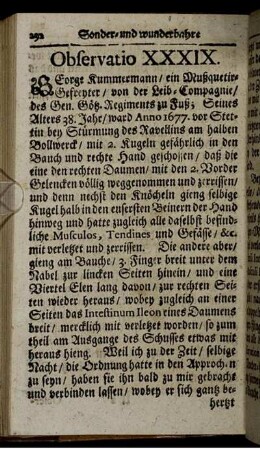 292 Sonder- und wunderbahre
Observatio XXXIX.
GEorge Kummermann/ ein Mußquetir-
Gefreyter/ von der Leib-Compagnie/
des Gen. Götz. Regiments zu Fuß/ Seines
Alters 38. Jahr/ ward Anno 1677. vor Stet-
tin bey Stürmung des Ravellins am halben
Bollwerck/ mit 2. Kugeln gefährlich in den
Bauch und rechte Hand geschossen/ daß die
eine den rechten Daumen/ mit den 2. Vorder
Gelencken völlig weggenommen und zerrissen/
und denn nechst den Knöcheln gieng selbige
Kugel halb in den eusersten Beinern der Hand
hinweg und hatte zugleich alle daselbst befind-
liche Musculos, Tendines und Gefässe/ &c.
mit verletzet und zerrissen. Die andere aber/
gieng am Bauche/ 3. Finger breit unter dem
Nabel zur lincken Seiten hinein/ und eine
Viertel Elen lang davon/ zur rechten Sei-
ten wieder heraus/ wobey zugleich an einer
Seiten das Intestinum Ileon eines Daumens
breit/ mercklich mit verletzet worden/ so zum
theil am Ausgange des Schusses etwas mit
heraus hieng. Weil ich zu der Zeit/ selbige
Nacht/ die Ordnung hatte in den Approch.n
zu seyn/ haben sie ihn bald zu mir gebracht
und verbinden lassen/ wobey er sich gantz be-
hertzt